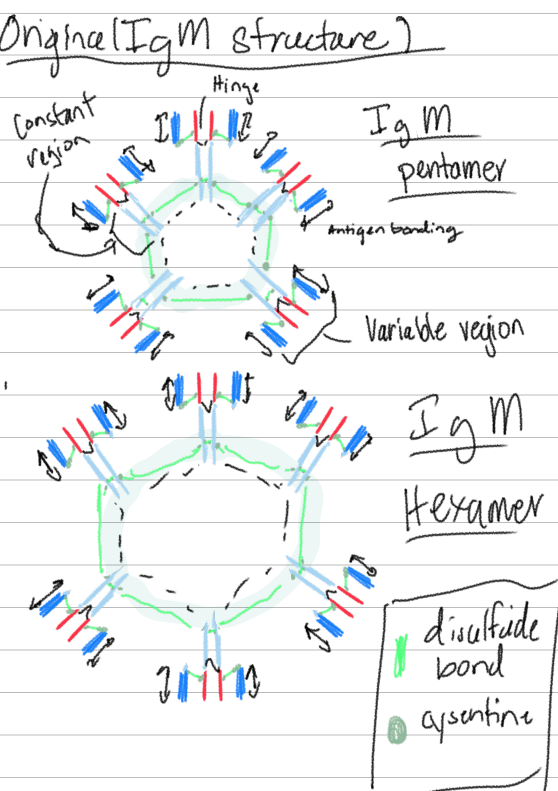 Original(IgM structure)
Hinge
Constant
region
IgM
pentamer
Antigen bonding
Variable region
IgM
Hexamer
disulfide
bond
cysentine